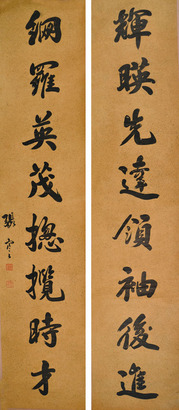 輝暎先達領袖後進
網羅英茂揔攬時才
張謇